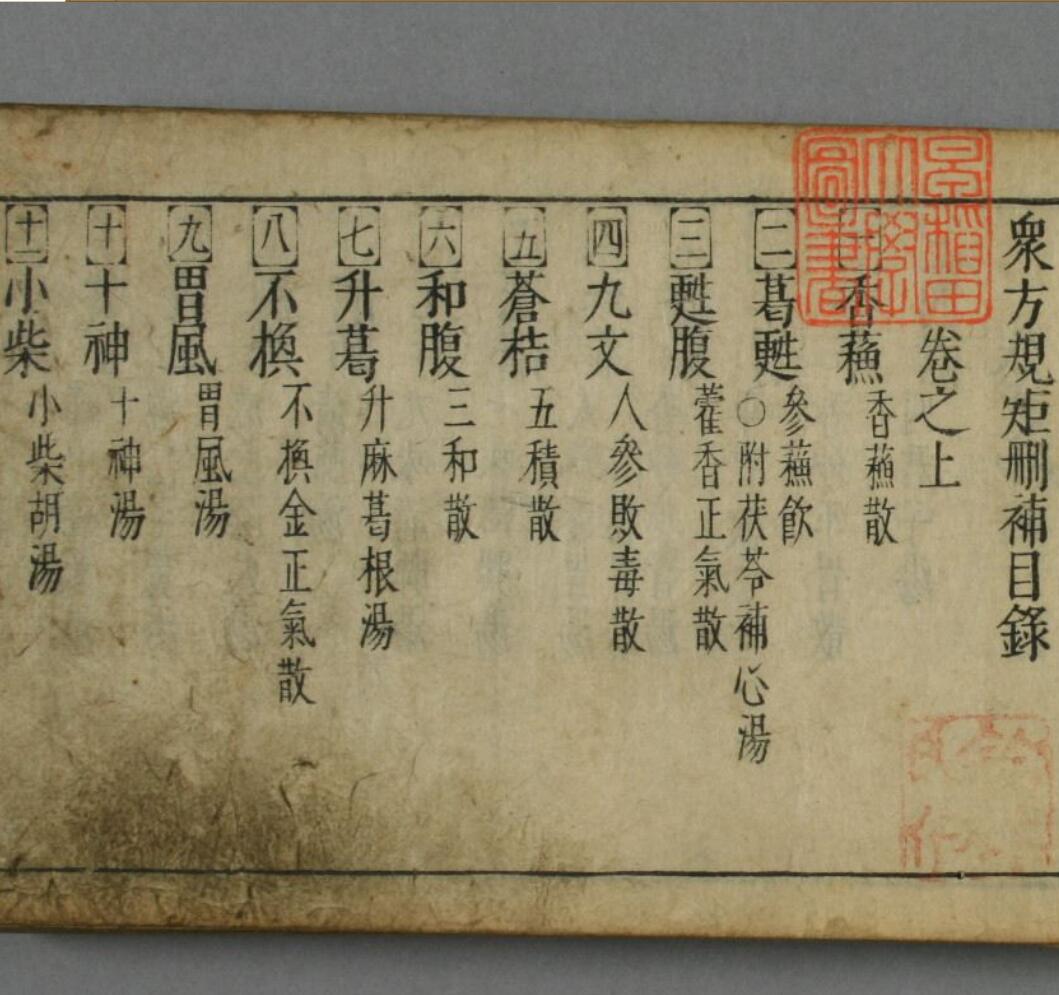 衆方規矩刪補目錄
卷之上
[一]香蘓 香蘓散
[二]葛甦 參蘓飲
○附茯苓補心湯
[三]甦腹 藿香正氣散
[四]九文 人參敗毒散
[五]蒼桔 五積散
[六]和腹 三和散
[七]升葛 升麻葛根湯
[八]不換 不換金正氣散
[九]胃風 胃風湯
[十]十神 十神湯
[十一]小柴 小柴胡湯
早稲田大學圖書